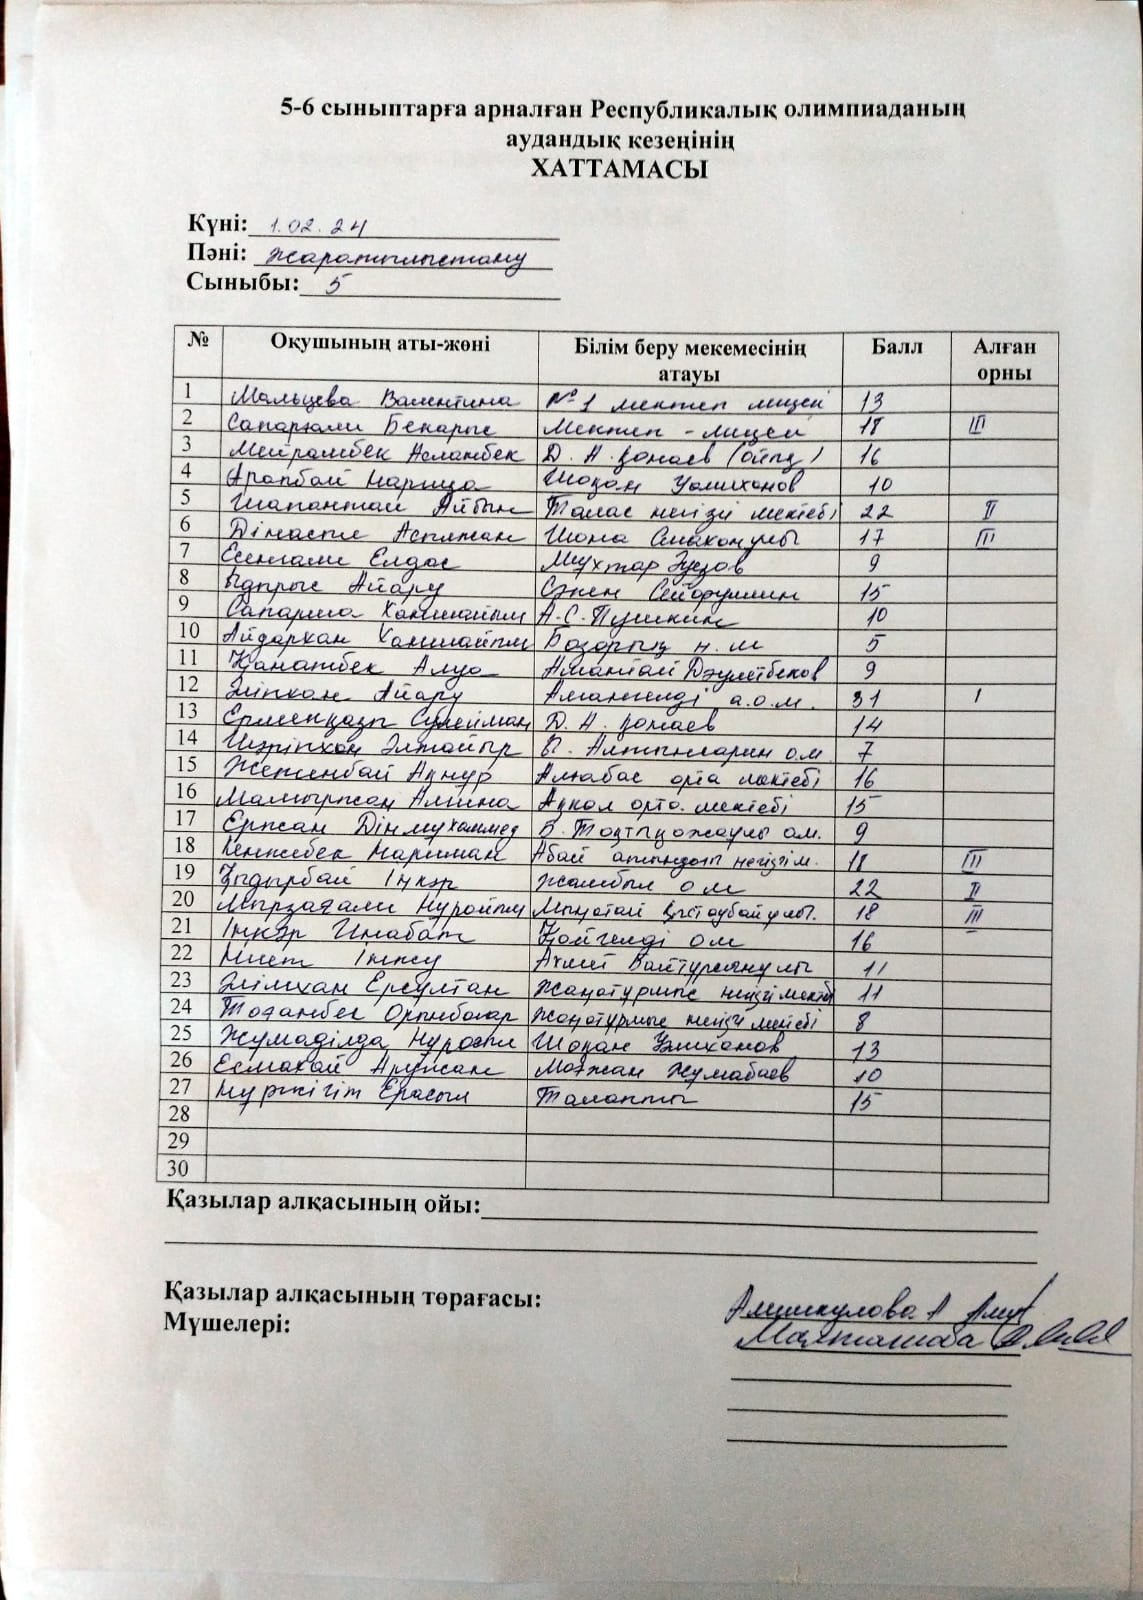 5-6 сыныптарға арналған Республикалық олимпиаданың
аудандық кезеңінің
ХАТТАМАСЫ
Күні: 1.02.24
Пәні: жаратылыстану
Сыныбы: 5
№ Оқушының аты-жөні Білім беру мекемесінің атауы Балл Алған орны
1 Мальцева Валентина №1 мектеп лицей 13
2 Сапарғали Бекарыс Мектеп - лицей 18 III
3 Мейрамбек Асланбек Д. А. Қонаев (ойық) 16
4 Арапбай Нариза Шоқан Уәлиханов 10
5 Шапантай Айбын Талас негізгі мектебі 22 II
6 Дінасыл Аспжан Шона Смаханұлы 17 III
7 Есенғали Елдос Мұхтар Әуезов 9
8 Ыдырыс Айару Сәкен Сейфуллин 15
9 Сапарша Ханшайым А.С. Пушкин 10
10 Айдархан Ханшайым Базарбай н. м 5
11 Қанатбек Алуа Амантай Дәулетбеков 9
12 Әліпхан Айару Амангелді а.о.м. 31 I
13 Ерменқазы Сүлейман Д. А. Қонаев 14
14 Шәріпхан Әлтайыр Ы. Алтынсарин о.м 7
15 Жетенбай Ақнұр Алғабас орта мектебі 16
16 Мамыржан Амина Ақкөл орта. мектебі 15
17 Ержан Дінмұхаммед Б. Тоқтықожаұлы ом. 9
18 Кенжебек Нариман Абай атындағы негізгі м. 18 III
19 Қыдырбай Іңкәр Жамбыл о м 22 II
20 Мырзағали Нұрайым Мыңатай Қыстаубайұлы. 18 III
21 Іңкәр Инабат Қойгелді о м 16
22 Ниет Інжу Ахмет Байтұрсынұлы 11
23 Әлімхан Ерсұлтан Жаңатұрмыс негізгі мектебі 11
24 Тоғанбек Орынбасар Жаңатұрмыс негізгі мектебі 8
25 Жумаділда Нұрасыл Шоқан Уәлиханов 13
26 Есмахай Аружан Мағжан Жумабаев 10
27 Нұржігіт Ерасыл Талапты 15
28
29
30
Қазылар алқасының ойы:
Қазылар алқасының төрағасы:
Мүшелері: